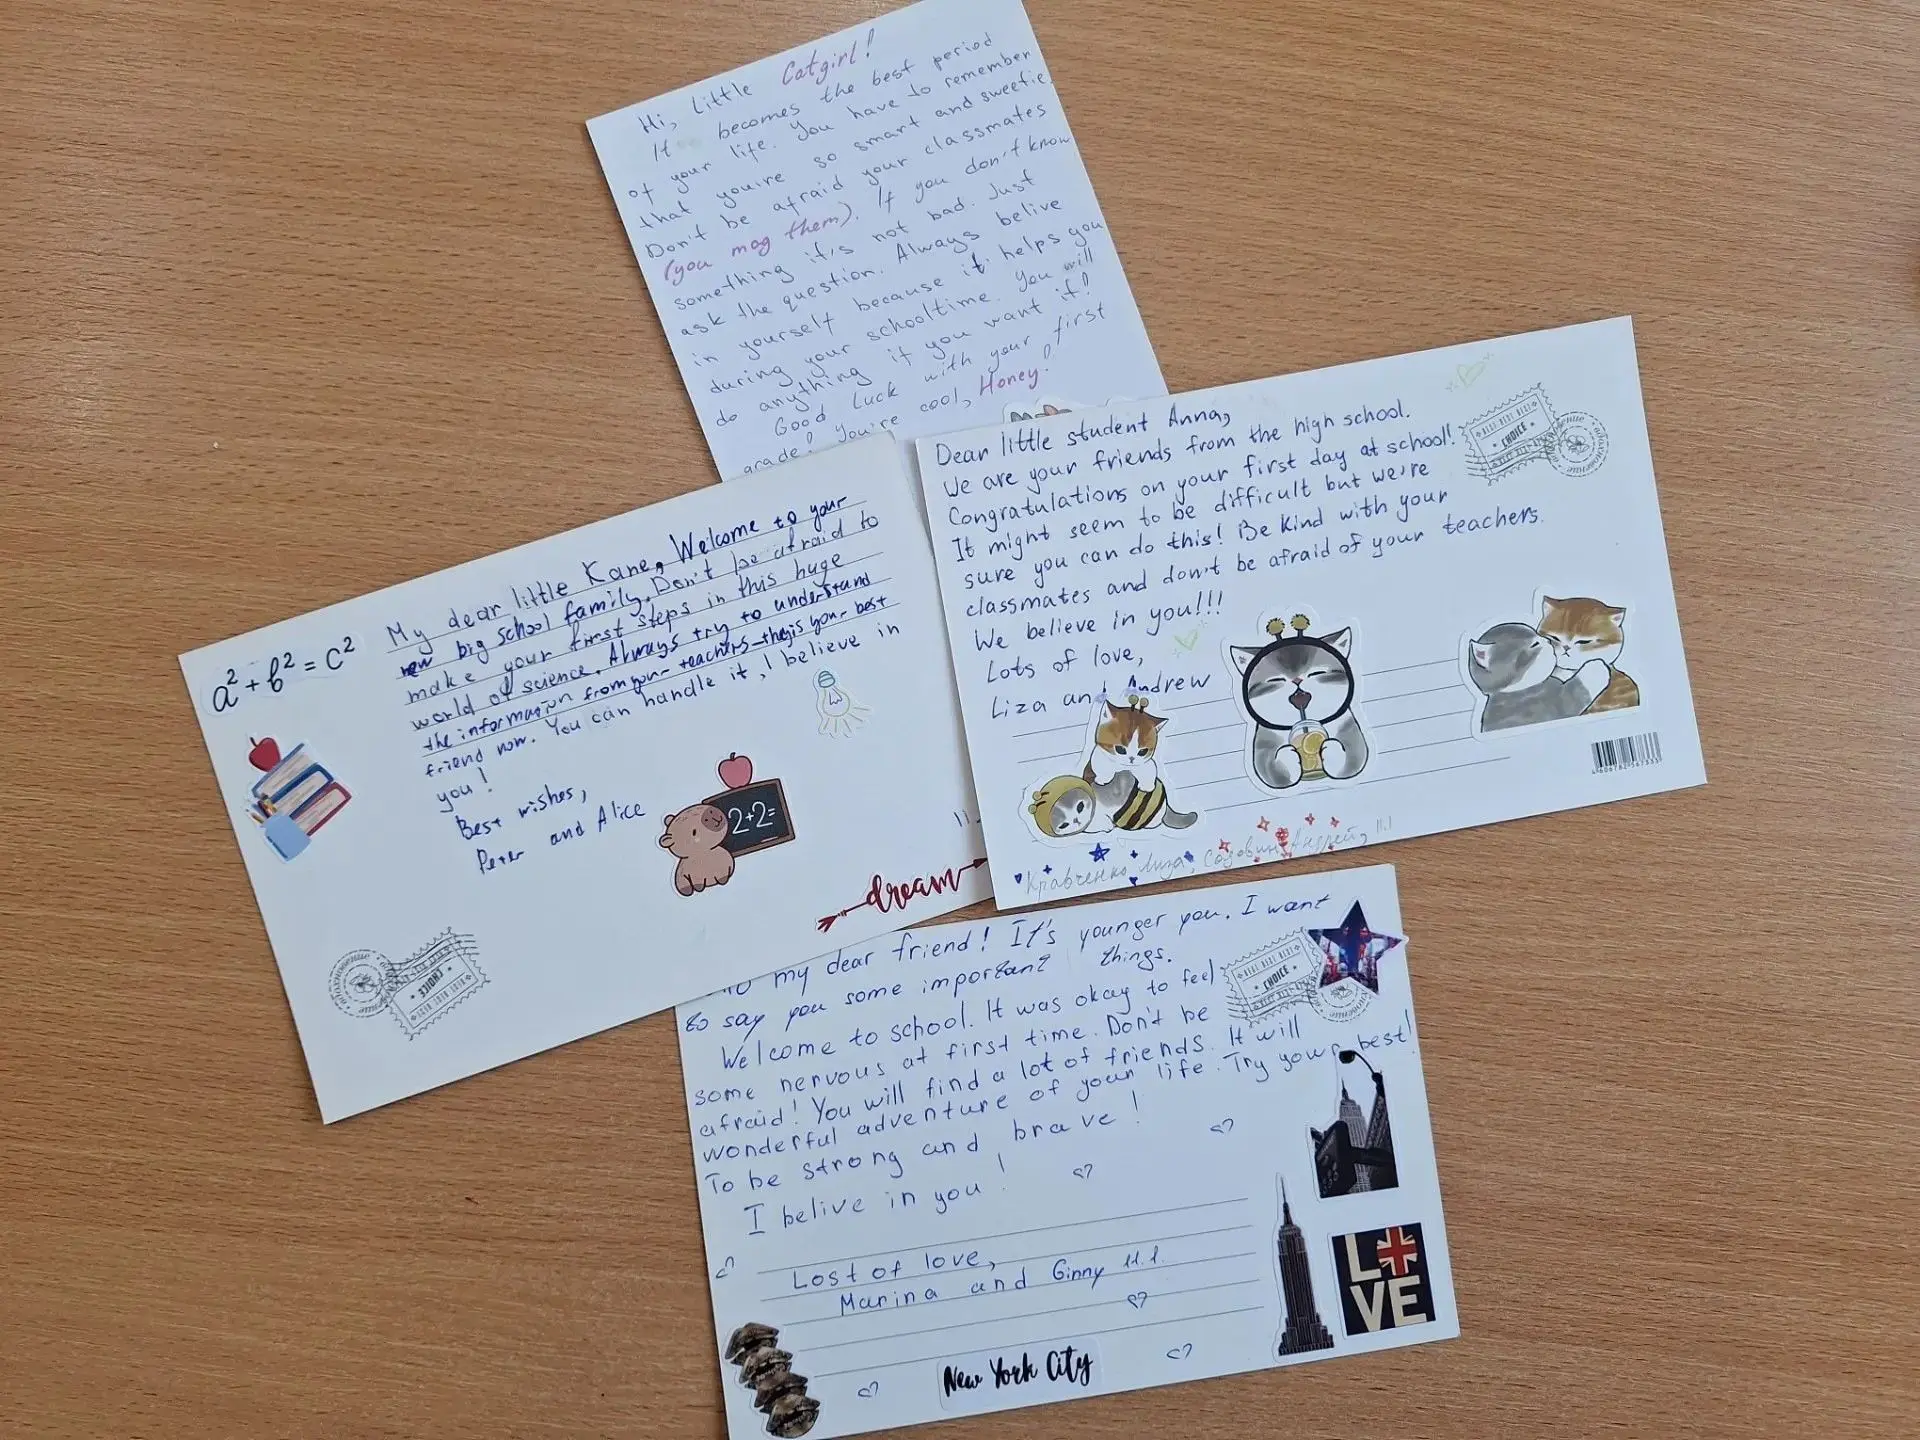 Hi, Little Catgirl!
It becomes the best period
of your life. You have to remember
that you're so smart and sweetie
Don't be afraid your classmates
(you mog them). If you don't know
something it's not bad. Just
ask the question. Always belive
in yourself because it helps you
during your schooltime. You will
do anything if you want it!
Good Luck with your first
grade! You're cool, Honey!
Dear little student Anna,
We are your friends from the high school.
Congratulations on your first day at school!
It might seem to be difficult but we're
sure you can do this! Be kind with your
classmates and don't be afraid of your teachers.
We believe in you!!!
Lots of love,
Liza and Andrew
CHOICE
4606782567333
Кравченко Лиза, Андрей, 11.1
a² + b² = c²
My dear little Kane, Welcome to your
new big school family. Don't be afraid to
make your first steps in this huge
world of science. Always try to understand
the information from your teachers - your best
friend now. You can handle it, I believe in
you!
Best wishes,
Peter and Alice
2+2=
11.
dream
CHOICE
my dear friend! It's younger you. I want
to say you some important things.
Welcome to school. It was okay to feel
some nervous at first time. Don't be
afraid! You will find a lot of friends. It will
wonderful adventure of your life. Try your best!
To be strong and brave!
I belive in you!
CHOICE
Lost of love,
Marina and Ginny 11.1.
LOVE
New York City